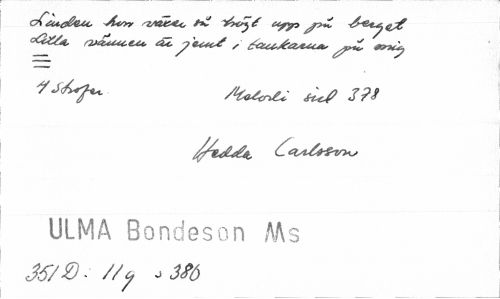 Linden hon växer så högt upp på berget
Lilla vännen är jemt i tankarna på mig
4 Strofer. Melodi sid 378
Hedda Carlsson
ULMA Bondeson Ms
351 D: 11 q s 386